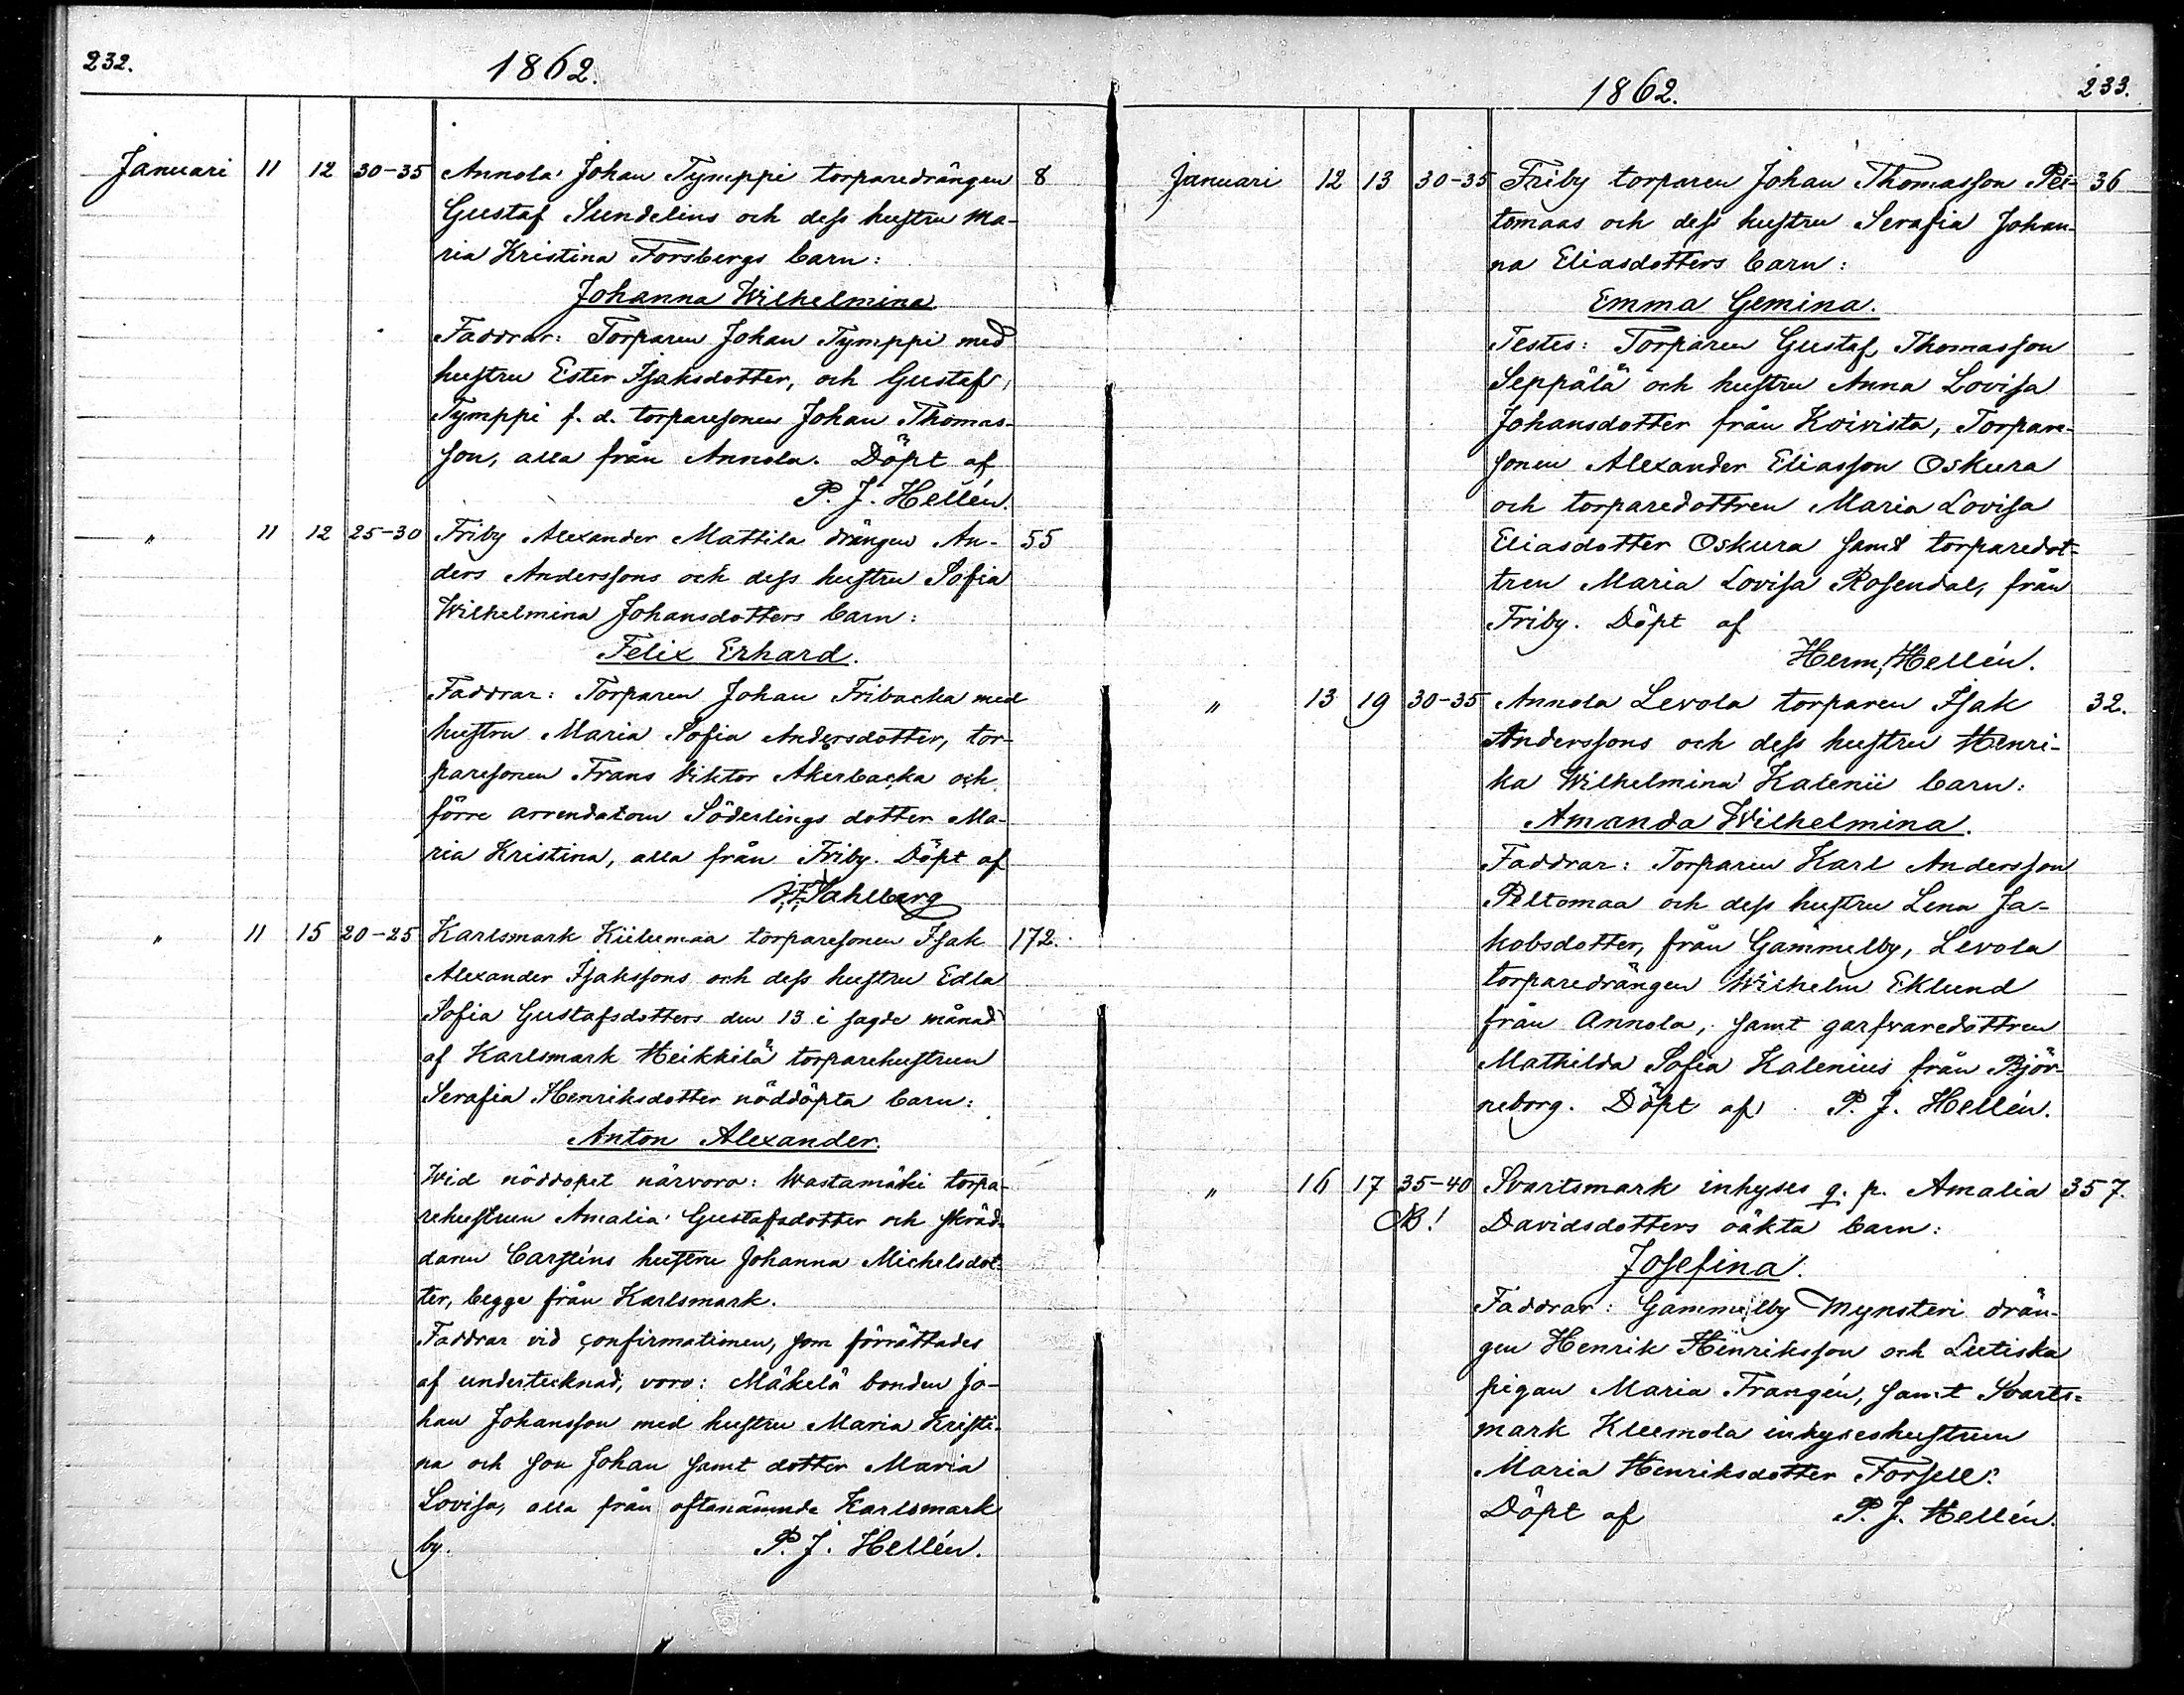 232.
1862.
Januari 11 12 30-35 Annola Johan Tymppi torparedrängen 8
Gustaf Sundelins och dess hustru Ma-
ria Kristina Forsbergs barn:
Johanna Wilhelmina
Faddrar: Torparen Johan Tymppi med
hustru Ester Isaksdotter, och Gustaf
Tymppi f. d. torparesonen Johan Thomas-
son, alla från Annola. Döpt af
P. J. Hellén.
" 11 12 25-30 Friby Alexander Mattila drängen An- 55
ders Anderssons och dess hustru Sofia
Wilhelmina Johansdotters barn:
Felix Erhard.
Faddrar: Torparen Johan Fribacka med
hustru Maria Sofia Andersdotter, tor-
paresonen Frans Viktor Akerbacka och
förre arrendatorn Söderlings dotter Ma-
ria Kristina, alla från Friby. Döpt af
Sahlberg
" 11 15 20-25 Karlsmark Kiilumaa torparesonen Isak 172.
Alexander Isakssons och dess hustru Edla
Sofia Gustafsdotters den 13 i sagde månad
af Karlsmark Heikkilä torparehustrun
Serafia Henriksdotter nöddöpta barn:
Anton Alexander.
Wid nöddopet närvoro: Wastamäki torpa-
rehustrun Amalia Gustafsdotter och skräd-
daren Carsténs hustru Johanna Michelsdot-
ter, begge från Karlsmark.
Faddrar vid confirmationen, som förrättades
af undertecknad, voro: Mäkelä bonden Jo-
han Johansson med hustru Maria Kristi-
na och son Johan samt dotter Maria
Lovisa, alla från oftanämnde Karlsmark
by. P. J. Hellén.
1862.
233.
Januari 12 13 30-35 Friby torparen Johan Thomasson Pel- 36
tomaas och dess hustru Serafia Johan-
na Eliasdotters barn:
Emma Gemina.
Testes: Torparen Gustaf Thomasson
Seppälä och hustru Anna Lovisa
Johansdotter från Koivista, Torpare-
sonen Alexander Eliasson Oskura
och torparedottren Maria Lovisa
Eliasdotter Oskura samt torparedot-
tren Maria Lovisa Rosendal, från
Friby. Döpt af
Herm. Hellén.
" 13 19 30-35 Annola Levola torparen Isak 32.
Anderssons och dess hustru Henri-
ka Wilhelmina Kalenii barn:
Amanda Wilhelmina.
Faddrar: Torparen Karl Andersson
Peltomaa och dess hustru Lena Ja-
kobsdotter, från Gammelby, Levola
torparedrängen Wilhelm Eklund
från Annola, samt garfvaredottren
Mathilda Sofia Kalenius från Björ-
neborg. Döpt af P. J. Hellén.
" 16 17 35-40 Svartsmark inhyses q. p. Amalia 357.
NB! Davidsdotters oäkta barn:
Josefina.
Faddrar: Gammelby Mynsteri drän-
gen Henrik Henriksson och Lutiska
pigan Maria Frangén, samt Svarts-
mark Kleemola inhyseshustrun
Maria Henriksdotter Forsell.
Döpt af P. J. Hellén.